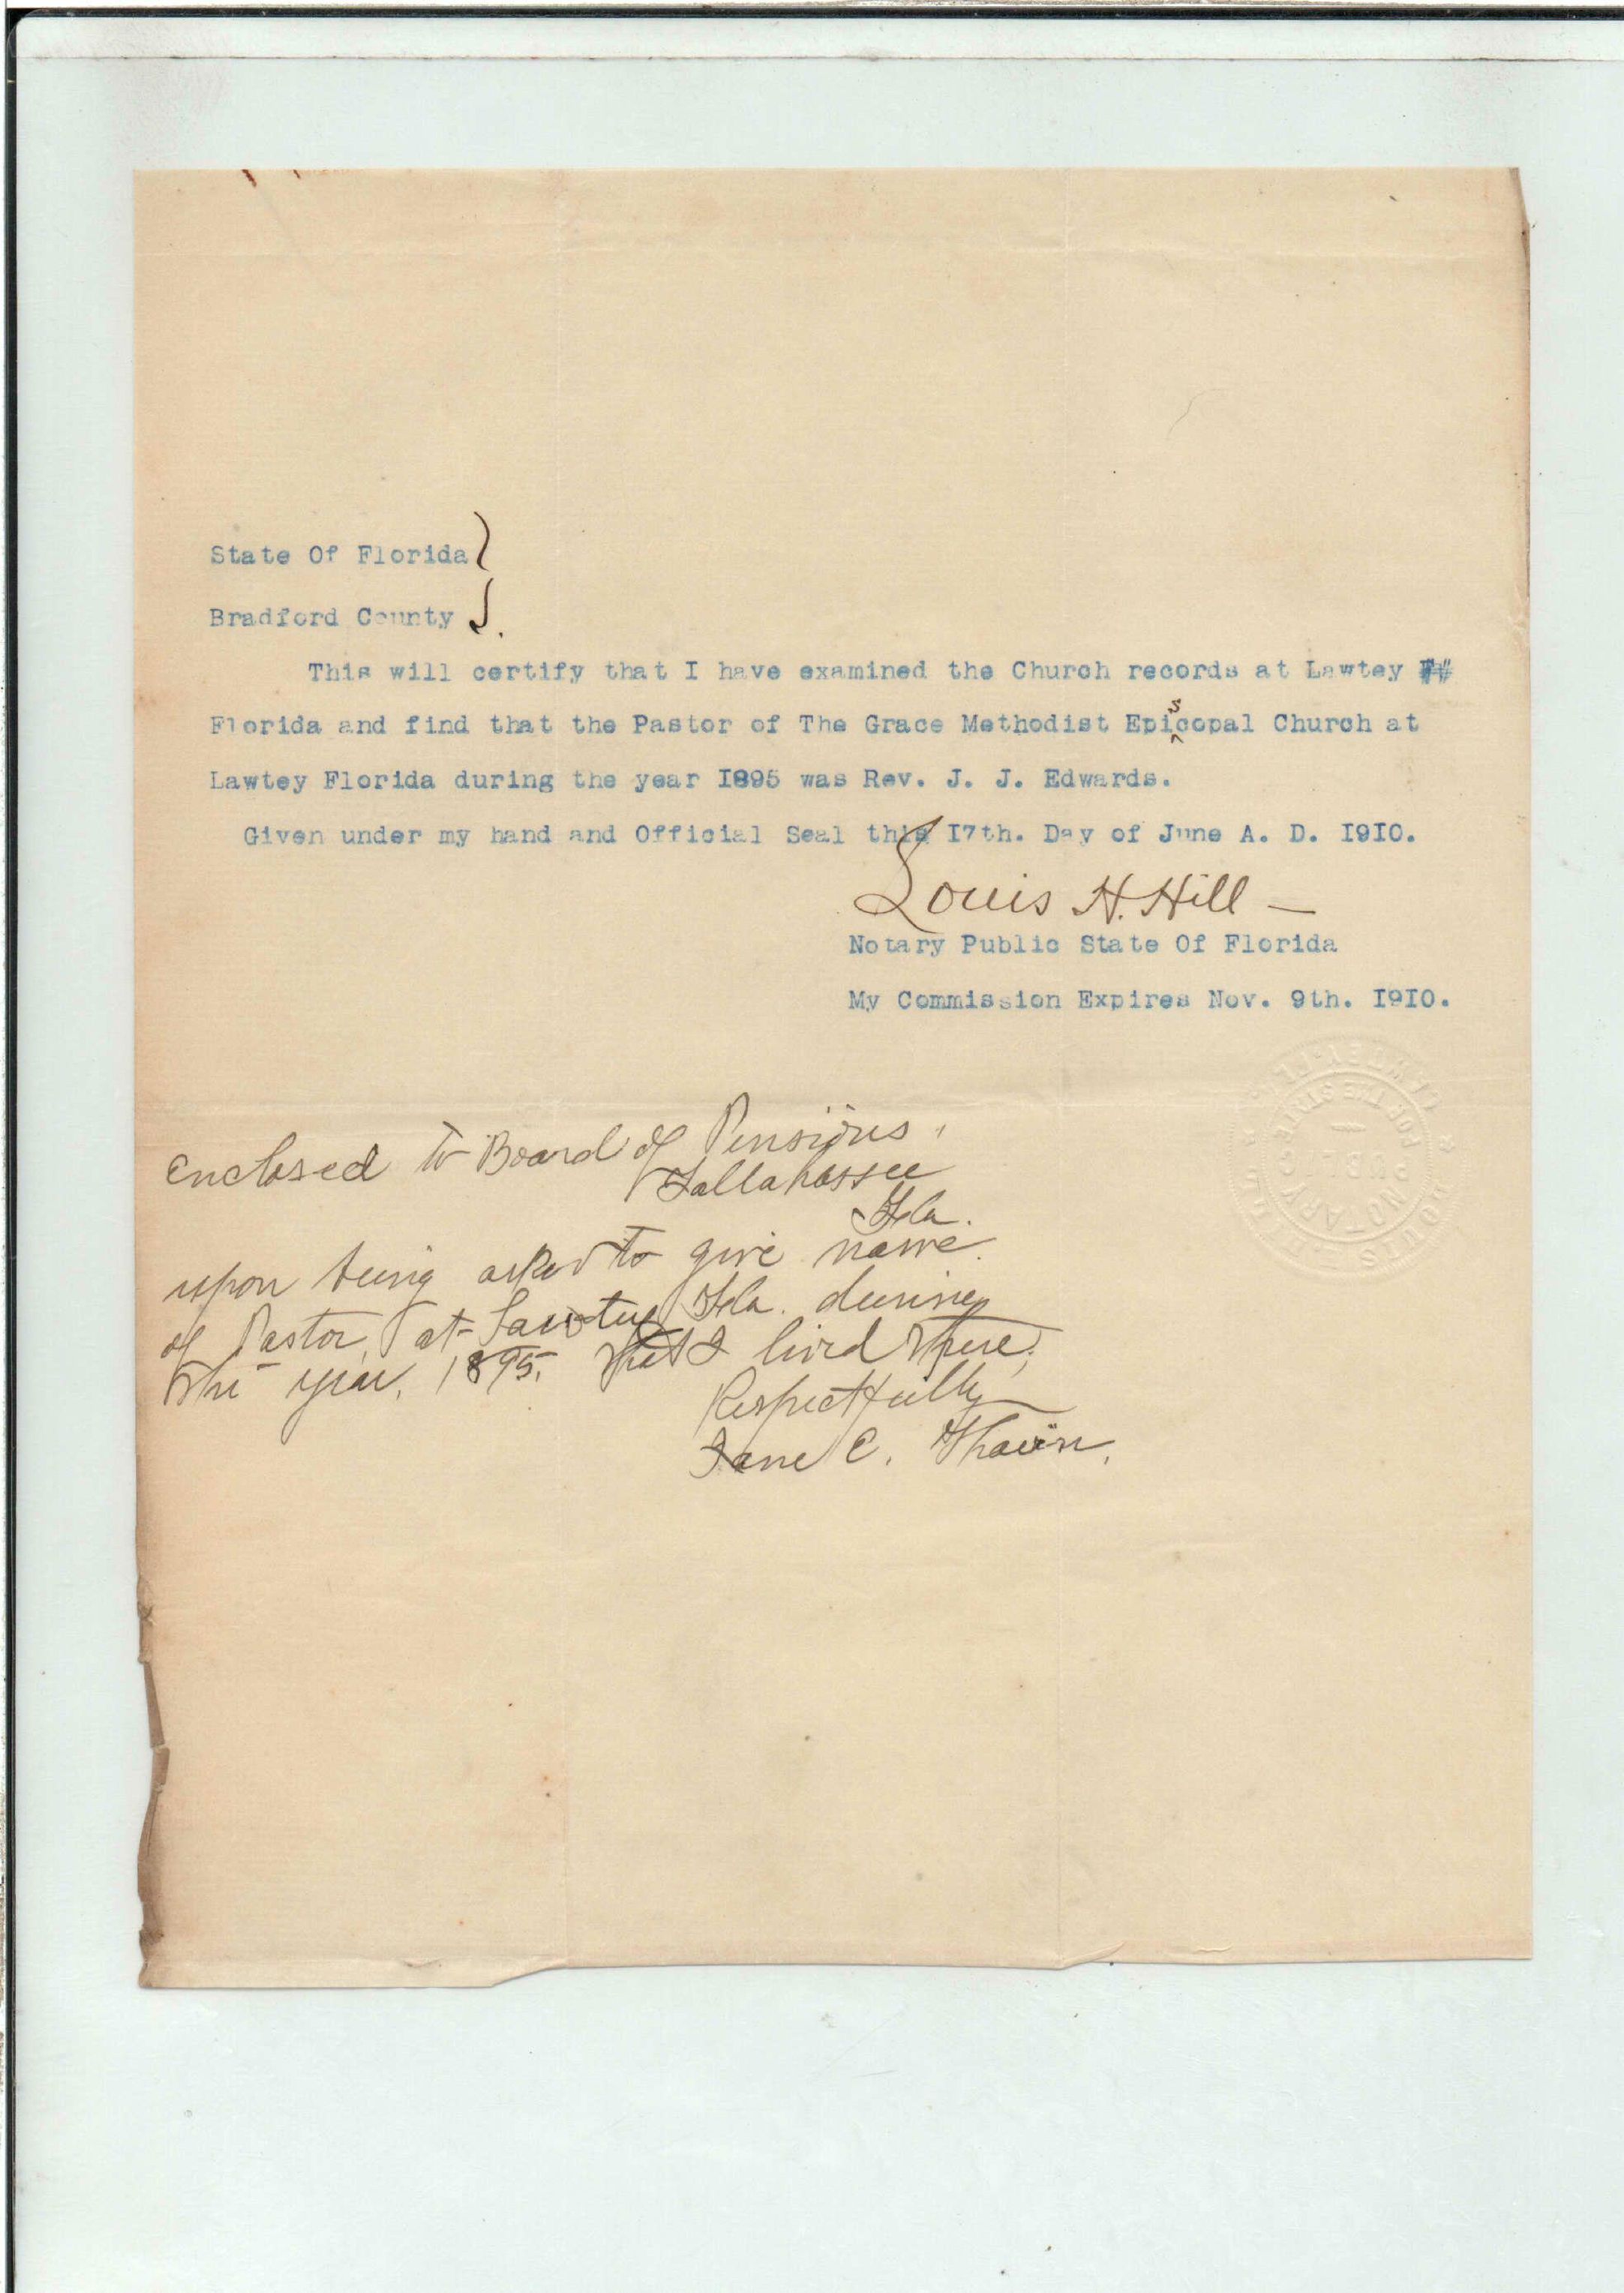 State Of Florida
Bradford County
This will certify that I have examined the Church records at Lawtey
Florida and find that the Pastor of The Grace Methodist Episcopal Church at
Lawtey Florida during the year I895 was Rev. J. J. Edwards.
Given under my hand and Official Seal this I7th. Day of June A. D. I9I0.
Louis H. Hill —
Notary Public State Of Florida
My Commission Expires Nov. 9th. I9I0.
LOUIS H. HILL
LAWTEY, FLA.
NOTARY PUBLIC
FOR THE STATE
Enclosed to Board of Pensions,
Tallahassee
Fla.
upon being asked to give name
of Pastor, at Lawtey Fla. during
the year, 1895, that I lived there,
Respectfully
Jane C.